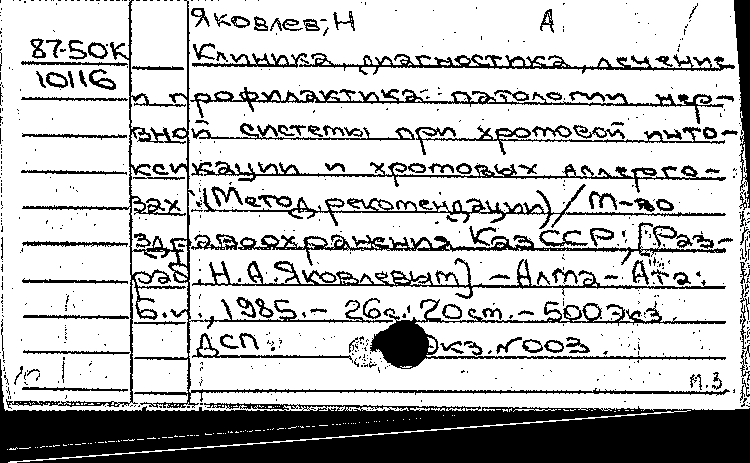 Яковлев, Н А.
87-50К Клиника, диагностика, лечение
10116
и профилактика патологии нер-
вной системы при хромовой инто-
ксикации и хромовых аллерго-
зах (Метод. рекомендации) / М-во
здравоохранения КазССР; [Раз-
раб. Н.А. Яковлевым] - Алма-Ата:
Б.и., 1985. - 26с.; 20 см. - 500 экз.
ДСП. Экз. №003.
М.З